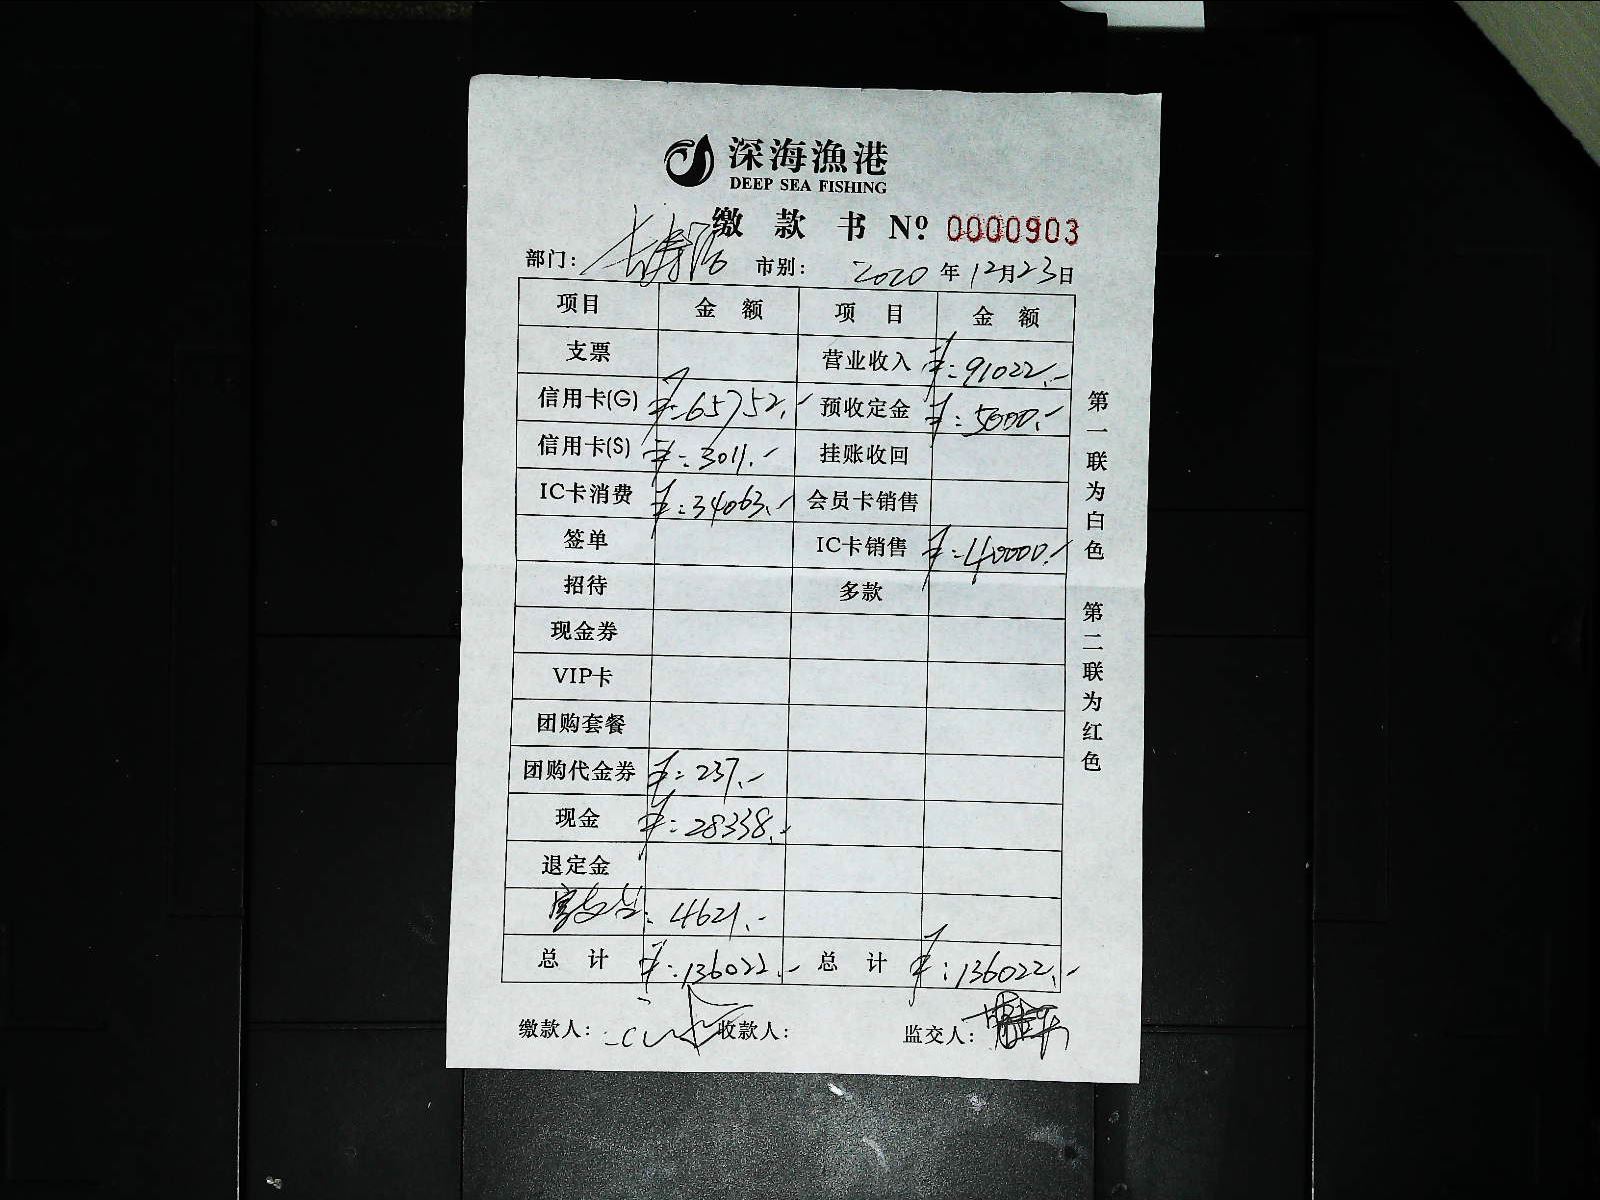 深海漁港
DEEP SEA FISHING
缴 款 书 Nº 0000903
部门: 长寿路 市别: 2020 年 12月23日
项目 金 额 项 目 金 额
支票 营业收入 ¥:91022.-
信用卡(G) ¥:65752.- 预收定金 ¥:5000.-
信用卡(S) ¥:3011.- 挂账收回
IC卡消费 ¥:34063.- 会员卡销售
签单 IC卡销售 ¥:40000.-
招待 多款
现金券
VIP卡
团购套餐
团购代金券 ¥:237.-
现金 ¥:28338.-
退定金
:4621.-
总 计 ¥:136022.- 总 计 ¥:136022.-
缴款人: 收款人: 监交人:
第一联为白色 第二联为红色